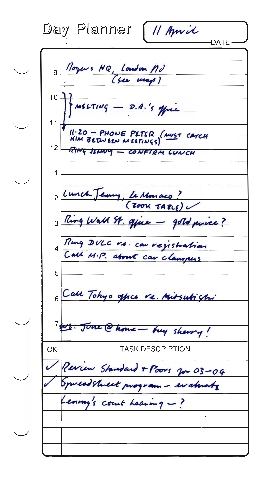 Day Planner
11 April
DATE
9 Rogers HQ, London Rd
(see map)
10
MEETING - D.A.'s office
11
11-20 - PHONE PETER (MUST CATCH
HIM BETWEEN MEETINGS)
12 RING JENNY - CONFIRM LUNCH
1
2 Lunch Jenny, Le Monaco?
(BOOK TABLE) ✓
3 Ring Wall St. office - gold price?
4 Ring DVLC re. car registration
Call M.P. about car clampers
5
6 Call Tokyo office re. Mitsubishi
7 June @ home - buy sherry!
OK TASK DESCRIPTION
✓ Review Standard + Poors for 03-04
✓ Spreadsheet program - evaluate
Lenny's court hearing - ?